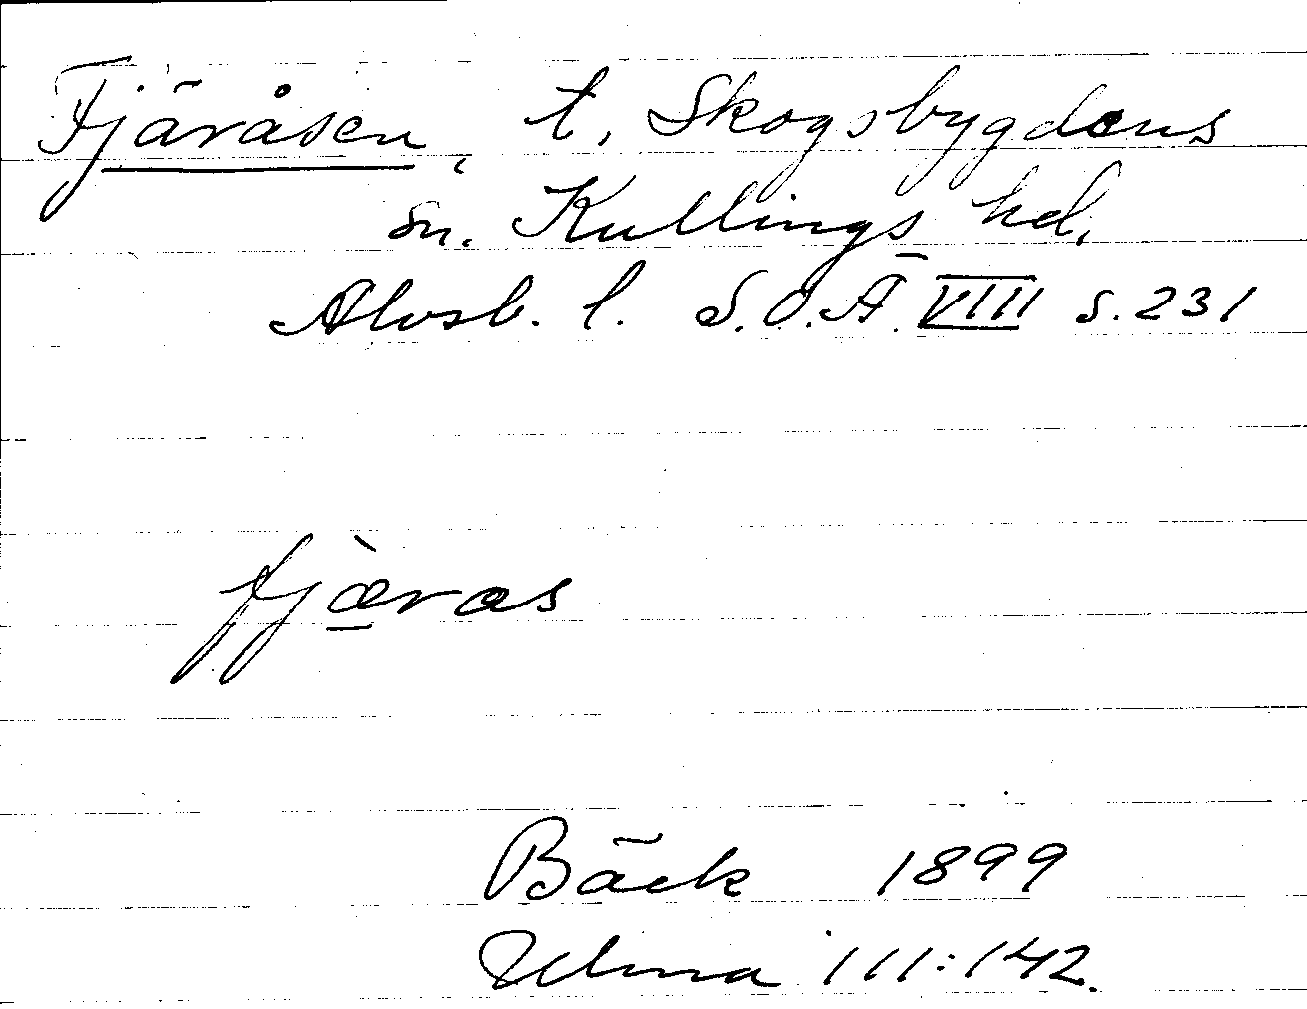 Fjäråsen, t, Skogsbygdens
sn. Kullings hd,
Älvsb. l. S.O.Ä. VIII s. 231
fjæ̀ras
Bäck 1899
Ulma 111:142.